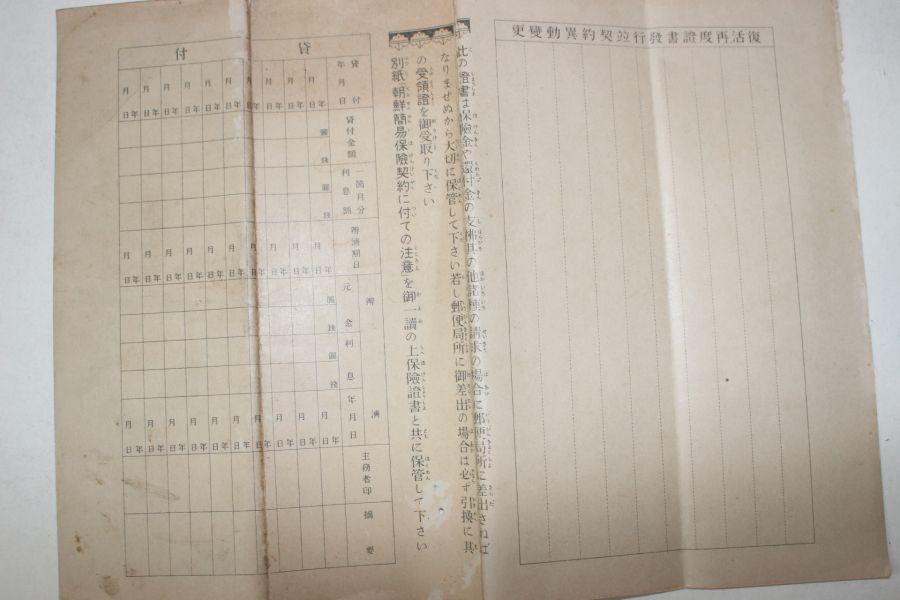 復活再度證書發行竝契約異動變更
此の證書は保險金や還付金の支拂其の他諸種の請求の場合に郵便局所に差出さねば
なりませぬから大切に保管して下さい若し郵便局所に御差出の場合は必ず引換に其
の受領證を御受取り下さい
別紙朝鮮簡易保險契約に付ての注意を御一讀の上保險證書と共に保管して下さい
貸付
貸付年月日
貸付金額
一箇月分利息額
辨濟期日
辨濟
元金
利息
年月日
主務者印
摘要
年月日 年月日 年月日 年月日 年月日 年月日 年月日 年月日 年月日
圓錢
圓錢
年月日 年月日 年月日 年月日 年月日 年月日 年月日 年月日 年月日
圓錢
圓錢
年月日 年月日 年月日 年月日 年月日 年月日 年月日 年月日 年月日